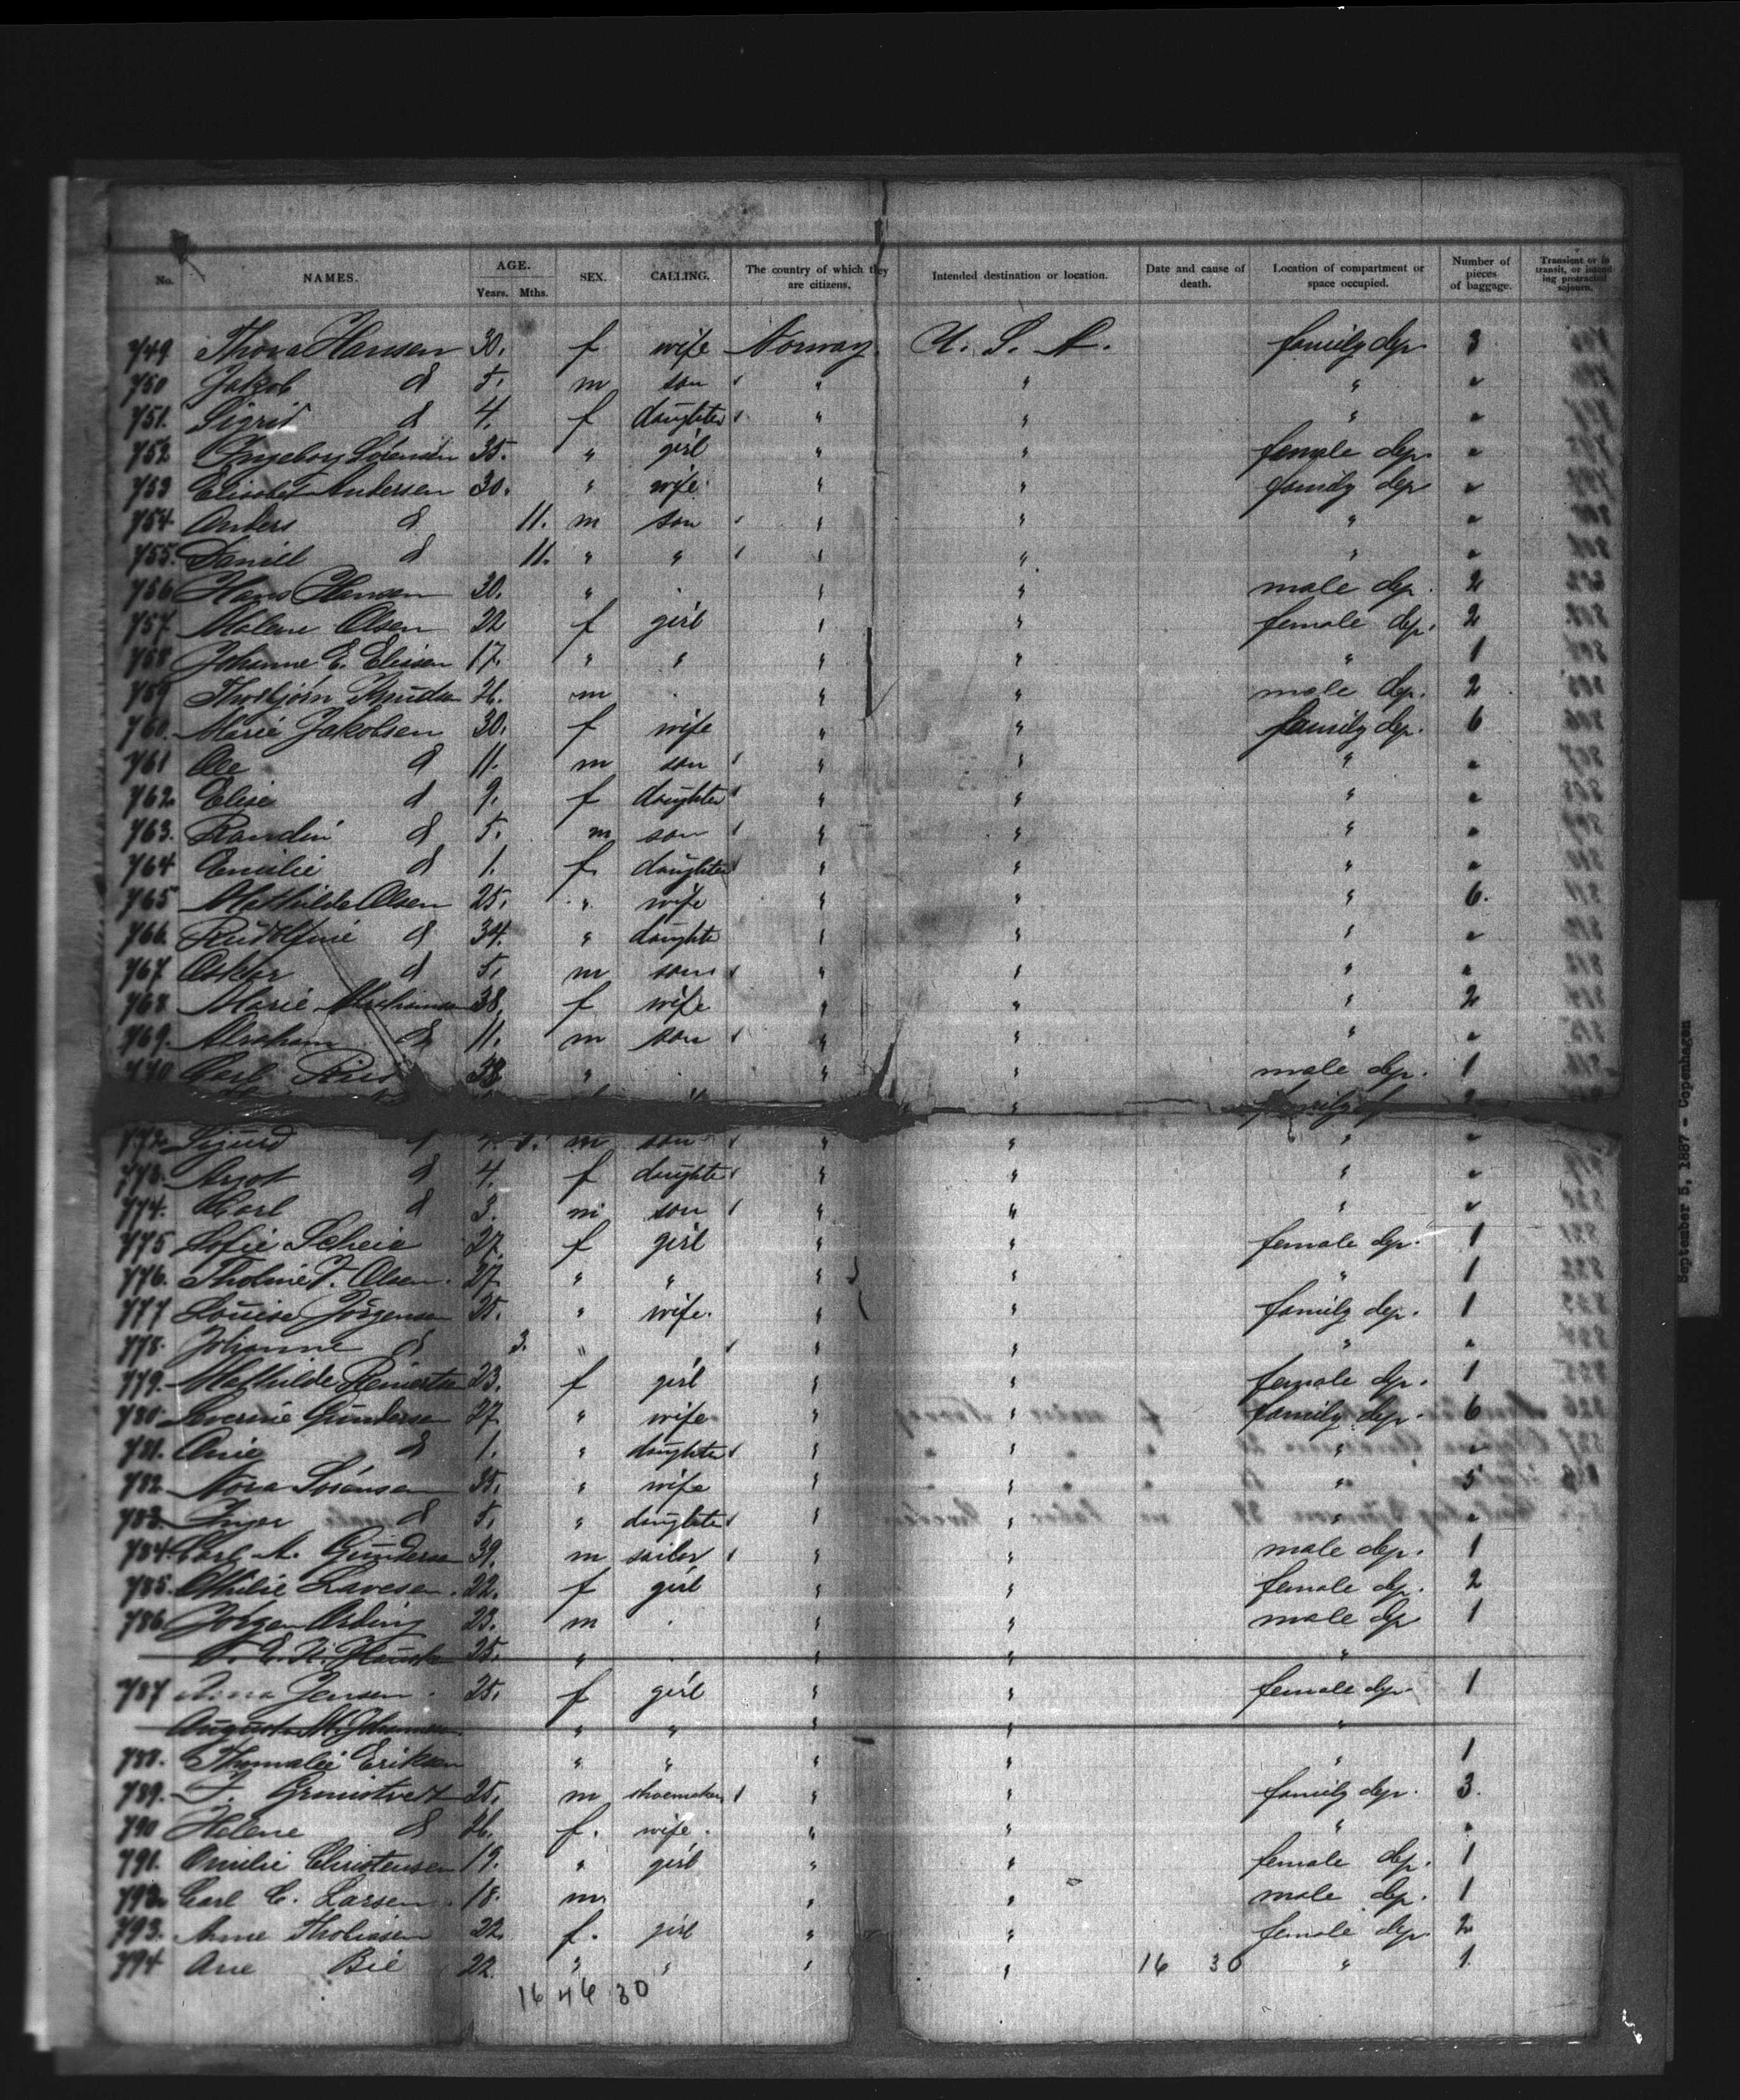 No. NAMES. AGE. Years. Mths. SEX. CALLING. The country of which they are citizens. Intended destination or location. Date and cause of death. Location of compartment or space occupied. Number of pieces of baggage. Transient or in transit, or intending protracted sojourn.
749 Thora Hansen 30. f wife Norway U. S. A. family dep. 3
750 Jakob d 5. m son " " " "
751. Sigrid d 4. f daughter " " " "
752 Ingeborg Sörensen 35. " girl " " female dep. "
753 Elisabet Andersen 30. " wife " " family dep "
754 Anders d 11. m son " " " "
755. Daniel d 11. " " " " " "
756 Hans Hansen 30. " " " male dep. 2
757. Malene Olsen 22 f girl " " female dep. 2
758 Johanne E. Eliesen 17. " " " " " 1
759 Thorbjörn 26. m " " male dep. 2
760. Marie Jakobsen 30. f wife " " family dep. 6
761 Ole d 11. m son " " " "
762. Elise d 9. f daughter " " " "
763. d 5. m son " " " "
764 Emilie d 1. f daughter " " " "
765 Mathilde Olsen 25. " wife " " " 6.
766. Rudolfine d 34. " daughte " " " "
767 Oskar d 5. m son " " " "
768 Marie 38. f wife " " " 2
769. Abraham d 11. m son " " " "
770 Carl 38 " " " male dep. 1
772. Sigurd d m son " " " "
773. d 4. f daughte " " " "
774. Carl d 3. m son " " " "
775 Sofie Scheie 27. f girl " " female dep. 1
776. T. Olsen. 27. " " " " " 1
777 Louise Jörgensen 25. " wife. " " family dep. 1
778. Johanne d 3. " " " " "
779. Mathilde Reinertsen 23. f girl " " female dep. 1
780. Severine Gundersen 27. " wife " " family dep. 6
781. Anie d 1. " daughter " " " "
782 Nora Sörensen 35. " wife " " " 5
783. Inger d 5. " daughter " " " "
784. Carl A. Gundersen 39. m sailor " " male dep. 1
785. Othilie Lavesen. 22. f girl " " female dep. 2
786 Jörgen 23. m " " male dep 1
25. " " " "
787 Jensen. 25. f girl " " female dep. 1
Augusta M. Johannesen " " " " "
788. Thomalie Eriksen " " " " " 1
789. 25. m shoemaker " " family dep. 3.
790 Helene d 26. f. wife. " " " "
791. Emilie Christensen 19. " girl " " female dep. 1
792. Carl C. Larsen 18. m " " male dep. 1
793. Anne Thobiasen 22. f. girl " " female dep. 2
794 Ane Bie 22. " " " " 16 30 " 1
16 46 30
September 5, 1887 - Copenhagen